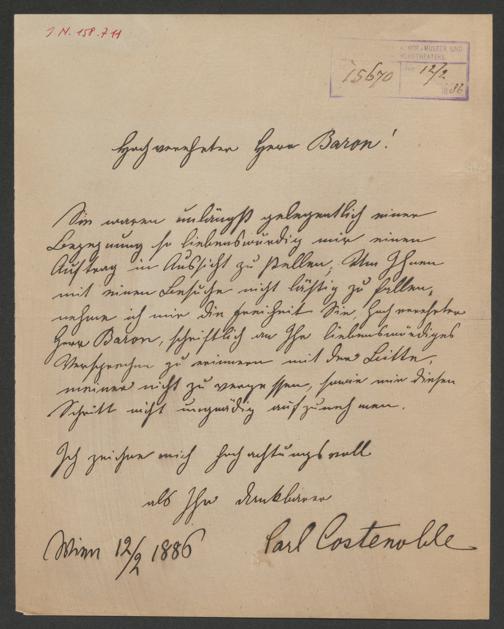 J.N. 158.711
K. K. HOF-MUSIK UND
HOFTHEATERS.
15670 12/2 1886
Hochverehrter Herr Baron!
Sie waren unlängst gelegentlich einer
Begegnung so liebenswürdig mir einen
Auftrag in Aussicht zu stellen, Um Ihnen
mit einem Besuche nicht lästig zu fallen,
nehme ich mir die Freiheit Sie, hochverehrter
Herr Baron, schriftlich an Ihr liebenswürdiges
Versprechen zu erinnern mit der Bitte,
meiner nicht zu vergessen, sowie mir diesen
Schritt nicht ungnädig aufzunehmen.
Ich zeichne mich hochachtungsvoll
als Ihr dankbarer
Wien 12/2 1886 Carl Costenoble